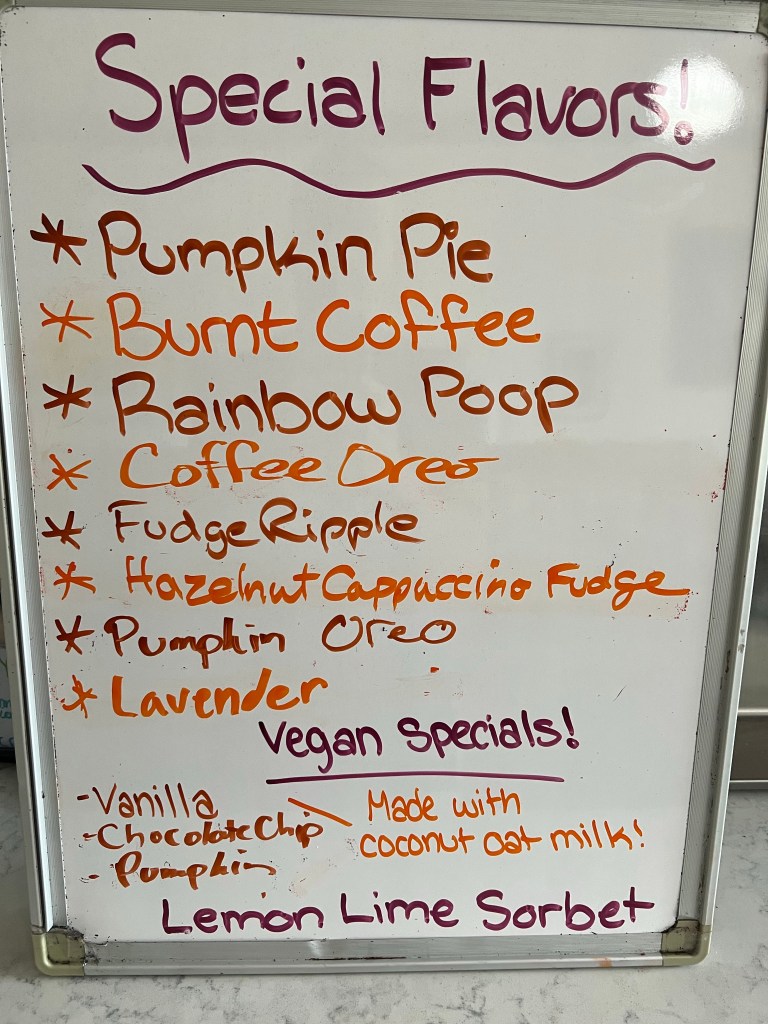 Special Flavors!
* Pumpkin Pie
* Burnt Coffee
* Rainbow Poop
* Coffee Oreo
* Fudge Ripple
* Hazelnut Cappuccino Fudge
* Pumpkin Oreo
* Lavender
Vegan Specials!
- Vanilla
- Chocolate Chip
- Pumpkin
Made with
coconut oat milk!
Lemon Lime Sorbet